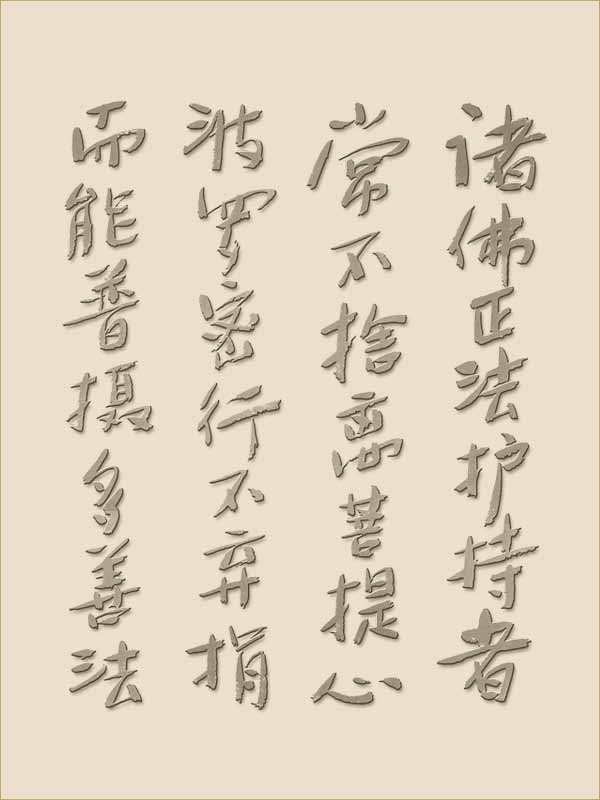 诸佛正法护持者
常不捨离菩提心
波罗密行不弃捐
而能普摄多善法